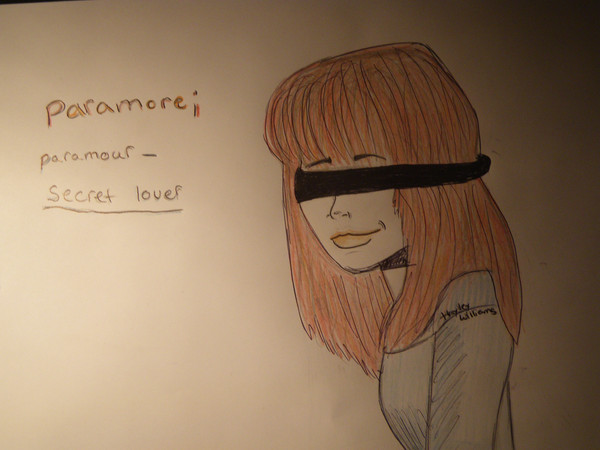 paramore¡
paramour –
secret lover
Hayley
Williams